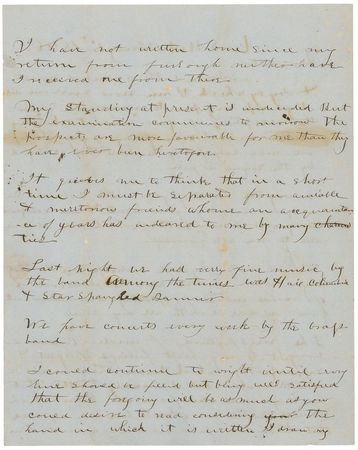 I have not written home since my
return from furlough neither have
I received one from there
My Standing at present is undecided But
the examination commences to morrow the
Prospects are more favourable for me than they
have ever been heretofore
It grieves me to think that in a short
time I must be separated from amiable
& meritorious friends whome an acquaintan
ce of years has endeared to me by many
ties
Last night we had very fine music by
the band among the tunes was Hail Columbia
& Star Spangled Banner
We have concerts every week by the brass
band
I could continue to wright until my
have should be but being well satisfied
that the forgoing will be as much as you
could desire to read considering the
hand in which it is written I draw my